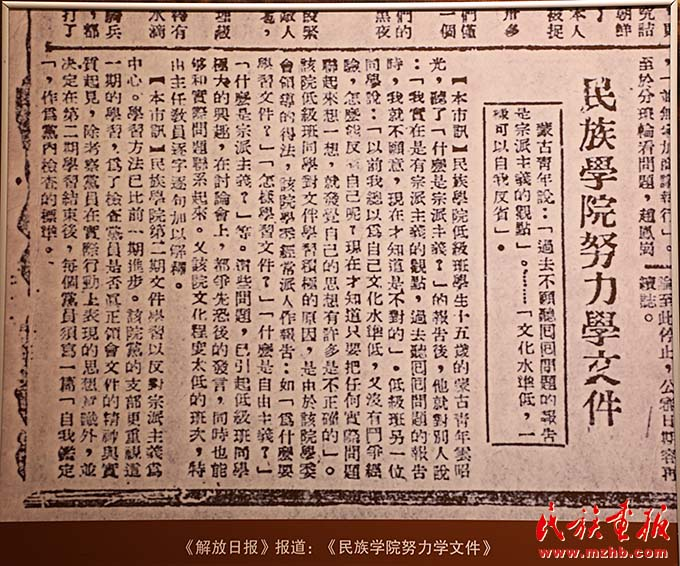 至於分班輪看問題，趙鳳崗
論至此停止，公審日期容再
續誌。
民族學院努力學文件
蒙古青年說：「過去不願聽回回問題的報告
是宗派主義的觀點」。……「文化水準低，一
樣可以自我反省」。
【本市訊】民族學院低級班學生十五歲的蒙古青年雲昭
光，聽了「什麼是宗派主義？」的報告後，他就對別人說
：「我實在是有宗派主義的觀點，過去聽回回問題的報告
時，我就不願意，現在才知道是不對的」。低級班另一位
同學說：「以前我總以爲自己文化水準低，又沒有鬥爭經
驗，怎麼能反省自己呢？現在才知道只要把任何實際問題
聯起來想一想，就發覺自己的思想有許多是不正確的」。
該院低級班同學對文件學習積極的原因，是由於該院學委
會領導的得法，該院學委經常派人作報告：如「爲什麼要
學習文件？」「怎樣學習文件？」「什麼是自由主義？」
「什麼是宗派主義？」等。這些問題，已引起低級班同學
極大的興趣，在討論會上，都爭先恐後的發言，同時也能
够和實際問題聯系起來。又該院文化程度太低的班次，特
由主任教員逐字逐句加以解釋。
【本市訊】民族學院第二期文件學習以反對宗派主義爲
中心。學習方法已比前一期進步。該院黨的支部更重視這
一期的學習，爲了檢查黨員是否眞正領會文件的精神與實
質起見，除考察黨員在實際行動上表現的思想意識外，並
決定在第二期學習結束後，每個黨員須寫一篇「自我鑑定
」，作爲黨內檢查的標準。
究詰
朝鮮
被捉
本人
卅多
一個
們僅
們的
黑夜
段緊
敵人
《解放日报》报道：《民族学院努力学文件》
民族画报
www.mzhb.com